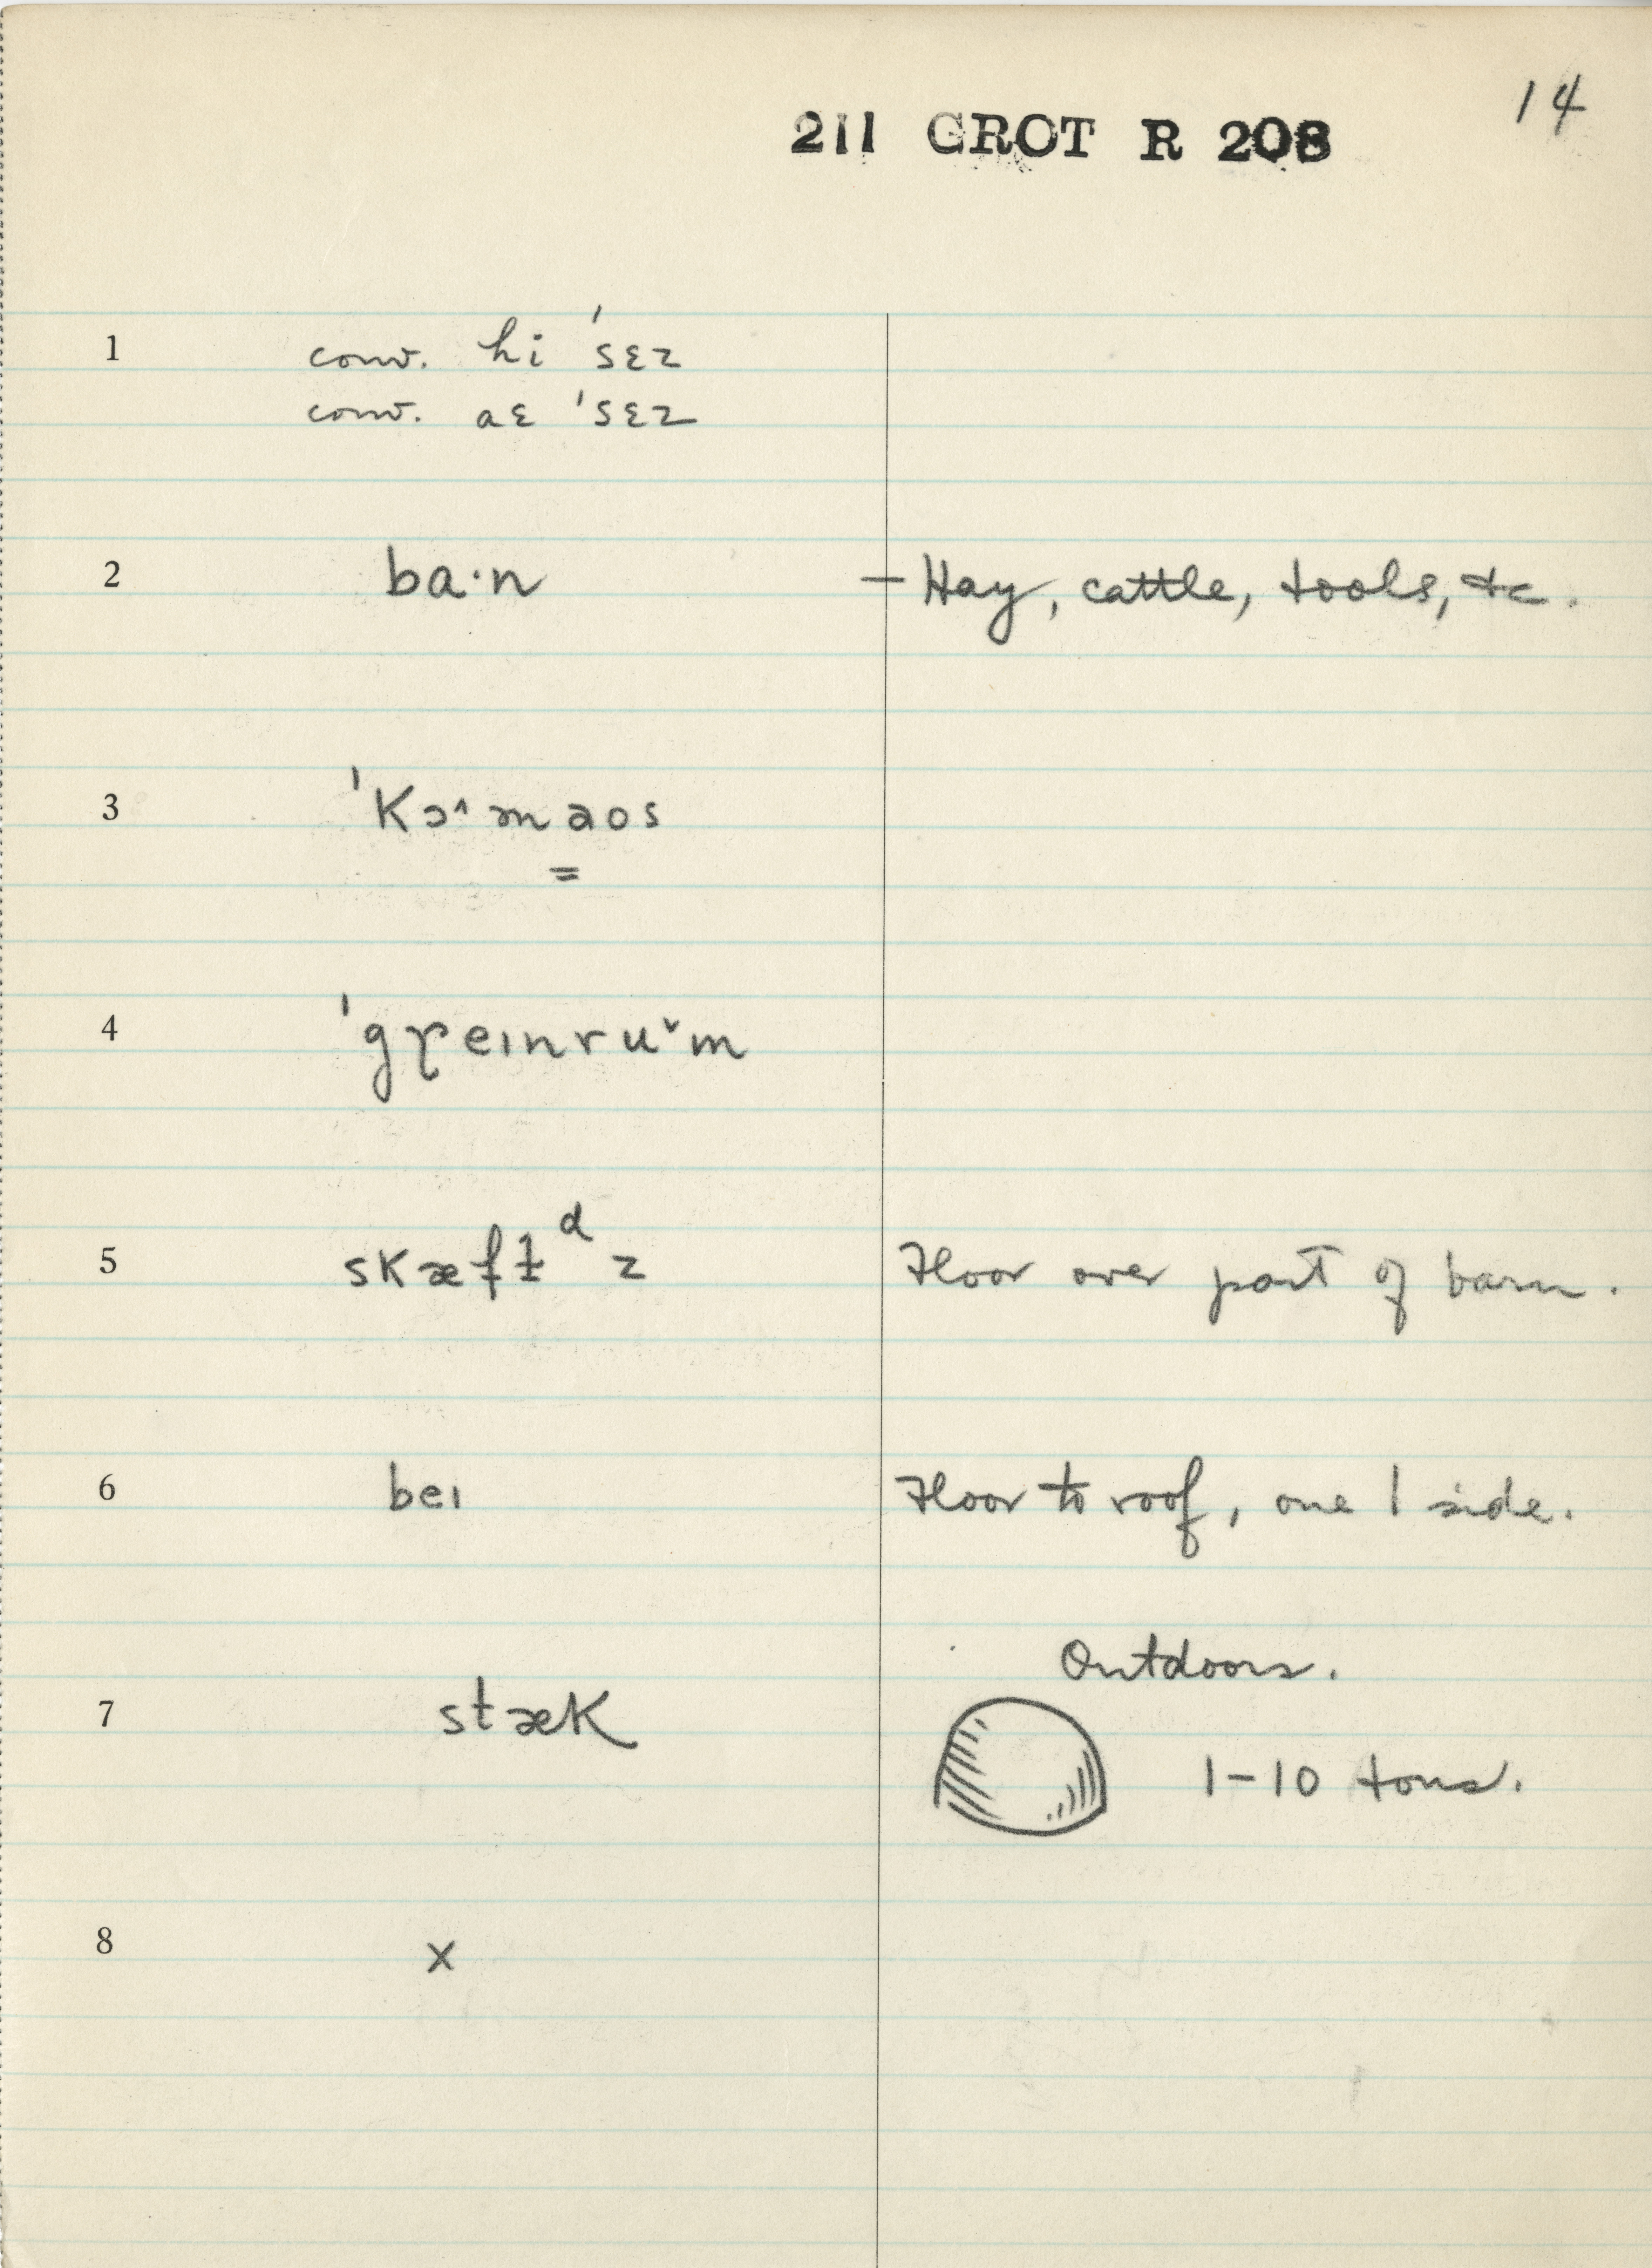 14
211 GROT R 208
1 conv. hi 'sɛz
conv. aɛ 'sɛz
2 ba·n – Hay, cattle, tools, etc.
3 'Kɔ˄maos
=
4 'greɪnru˅m
5 skæft d z Floor over part of barn.
6 beɪ Floor to roof, one 1 side.
Outdoors.
7 stæK
1–10 tons.
8 x